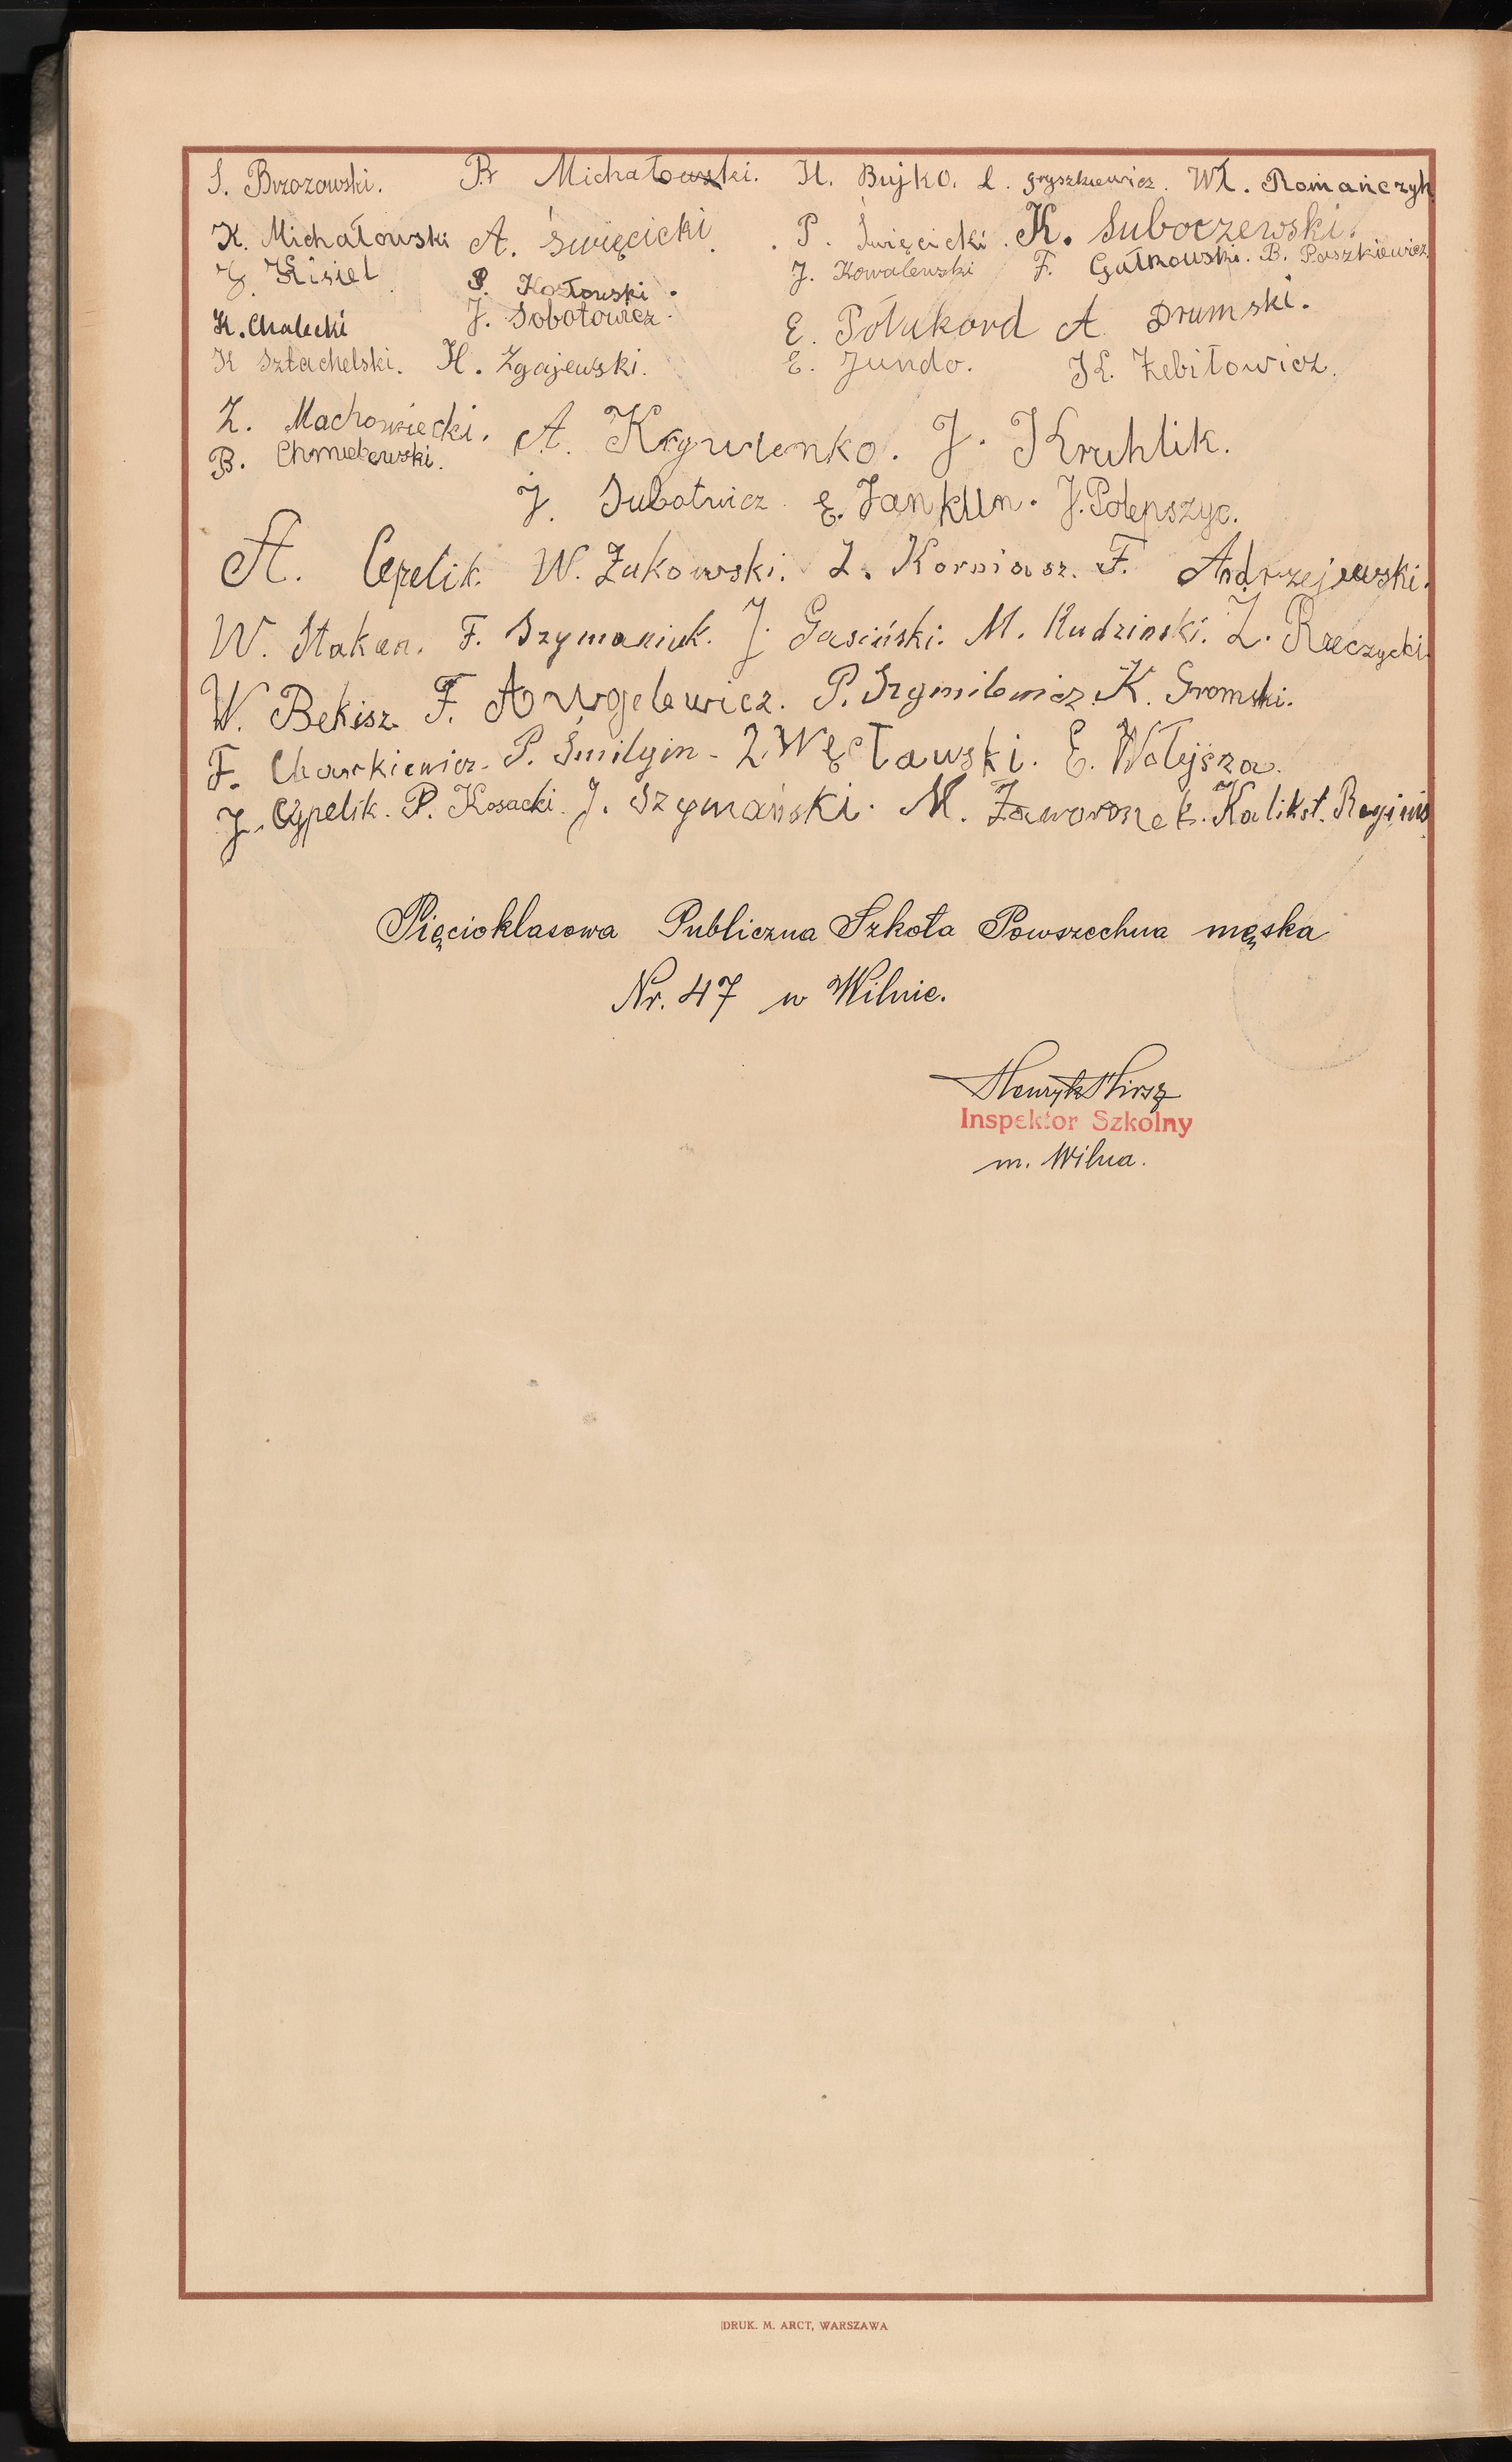 S. Brzozowski. Br Michałowski. H. Bujko. L. Gryszkiewicz. Wł. Romańczyk
K. Michałowski A. Święcicki. P. Święcicki. K. Suboczewski.
J. Kisiel P. Kozłowski. J. Kowalewski F. Gałkowski. B. Paszkiewicz.
K. Chalecki J. Sobotowicz. E. Połukord A. Drumski.
K Sztachelski. H. Zgajewski. E. Jundo. K. Żebiłowicz.
Z. Machowiecki. A. Krywienko. J. Kruhlik.
B. Chmielewski.
J. Subotwicz E. Jankun. J. Polepszyc.
A. Cepelik. W. Żukowski. L. Korniasz. F. Andrzejewski.
W. Stakan. F. Szymaniuk. J. Gasiński. M. Rudzinski. Z. Rzeczycki.
W. Bekisz F. Awgelewicz. P. Szymilewicz K. Gromski.
F. Charkiewicz. P. Śmilgin - Z Węcławski. E. Wołejsza.
J. Czpelik. P. Kosacki. J. Szymański. M. Zaworonek. Kalikst. Reginis
Pięcioklasowa Publiczna Szkoła Powszechna męska
Nr. 47 w Wilnie.
Henryk Hirsz
Inspektor Szkolny
m. Wilna.
DRUK. M. ARCT, WARSZAWA